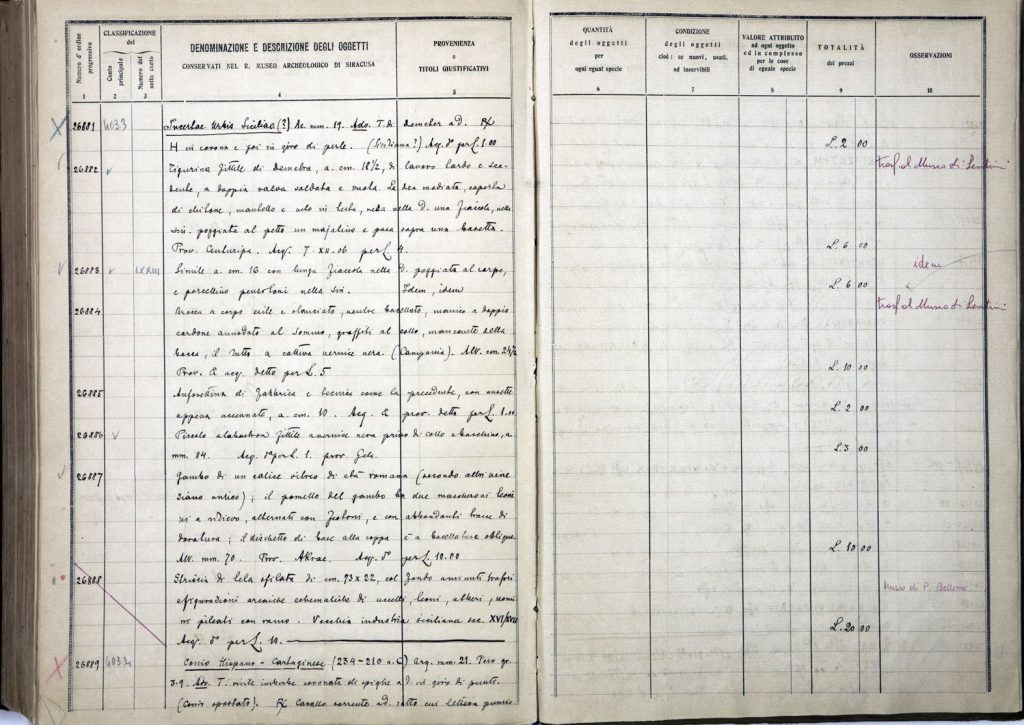 Numero d'ordine progressivo
CLASSIFICAZIONE del
Conto principale
Numero del sotto conto
DENOMINAZIONE E DESCRIZIONE DEGLI OGGETTI
CONSERVATI NEL R. MUSEO ARCHEOLOGICO DI SIRACUSA
PROVENIENZA
e
TITOLI GIUSTIFICATIVI
QUANTITÀ
degli oggetti
per
ogni egual specie
CONDIZIONE
degli oggetti
cioè: se nuovi, usati,
od inservibili
VALORE ATTRIBUITO
ad ogni oggetto
ed in complesso
per le cose
di eguale specie
TOTALITÀ
dei prezzi
OSSERVAZIONI
1 2 3 4 5 6 7 8 9 10
26881 4033 Incertae Urbis Siciliae (?) Ae. mm. 19. Adv. T. di Demeter a d. Rx
H in corona e poi in giro di perle. (Siciliana?) Acq. 5° per L. 1.00
L. 2 00
26882 v Figurina fittile di Demetra, a. cm. 18½, di lavoro tardo e sca-
dente, a doppia valva saldata e vuota. La dea modiata, coperta
di chitone, mantello e velo in testa, nella d. una fiaccola, nella
sin. poggiata al petto un maialino e posa sopra una basetta.
Prov. Centuripa. Acq. 7.XII.06 per L. 4.
L. 6 00
trasf. al Museo di Lentini
26883 v LXXIII Simile a. cm. 16 con lunga fiaccola nella d. poggiata al corpo,
e porcellino penzoloni nella sin. Idem, idem
L. 6 00
idem
26884 Brocca a corpo ovile e slanciato, ventre baccellato, manico a doppio
cordone annodato al sommo, graffiti al collo, mancante della
bocca, il tutto a cattiva vernice nera. (Campania). Alt. cm. 24½
Prov. e acq. detto per L. 5
L. 10 00
trasf. al Museo di Lentini
26885 Anforettina di fabbrica e tecnica come la precedente, con ansette
appena accennate, a. cm. 10. Acq. e prov. detta per L. 1.00
L. 2 00
26886 v Piccolo alabastron fittile a vernice nera privo di collo e bocchino, a.
mm. 84. Acq. 5° per L. 1. prov. Gela.
L. 3 00
26887 Gambo di un calice vitreo di età romana (secondo altri vene
ziano antico); il pomello del gambo ha due mascheroni leoni
ni a rilievo, alternati con festoni, e con abbondanti tracce di
doratura; il dischetto di base alla coppa è a baccellature oblique.
Alt. mm. 70. Prov. Akrae. Acq. 5° per L. 10.00
L. 10 00
26888 Striscia di tela sfilata di cm. 73 x 22, col fondo a minuti trafori
e figurazioni arcaiche schematiche di uccelli, leoni, alberi, uomi
ni pileati con ramo. Vecchia industria siciliana sec. XVI/XVII
Acq. 5° per L. 10.
L. 20 00
Museo di P. Bellomo
26889 4034 Conio Hispano-Cartaginese (234-210 a. C) Arg. mm. 21. Peso gr.
3.9. Adv. T. virile imberbe coronata di spighe a d. in giro di punti.
(Conio spostato). Rx Cavallo corrente a d. sotto cui lettera punica